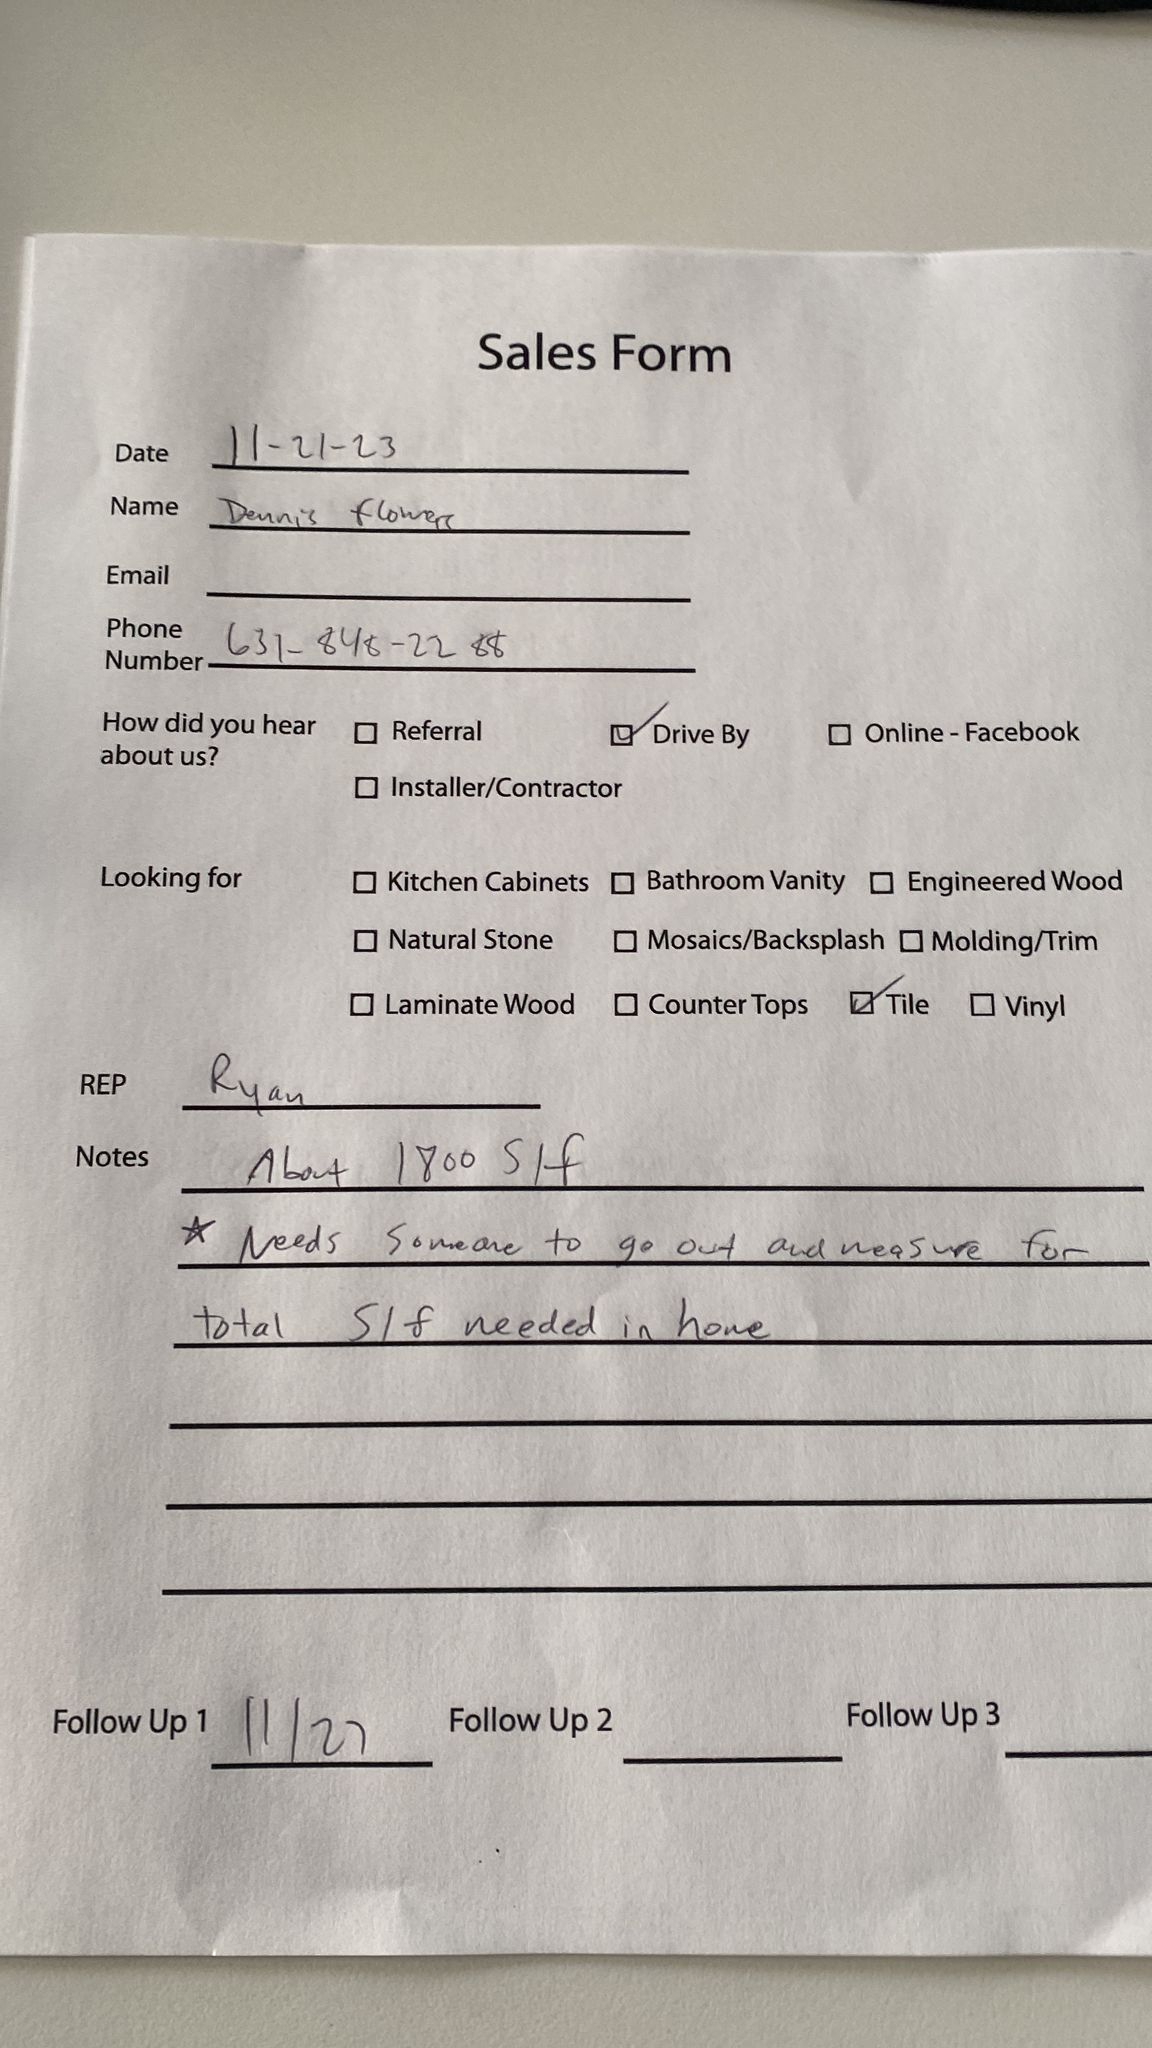 Sales Form
Date 11-21-23
Name Dennis Flowers
Email
Phone
Number 631-848-2288
How did you hear ☐ Referral ☑ Drive By ☐ Online - Facebook
about us?
☐ Installer/Contractor
Looking for ☐ Kitchen Cabinets ☐ Bathroom Vanity ☐ Engineered Wood
☐ Natural Stone ☐ Mosaics/Backsplash ☐ Molding/Trim
☐ Laminate Wood ☐ Counter Tops ☑ Tile ☐ Vinyl
REP Ryan
Notes About 1800 S/f
* Needs Someone to go out and measure for
total S/f needed in home
Follow Up 1 11/27 Follow Up 2 Follow Up 3